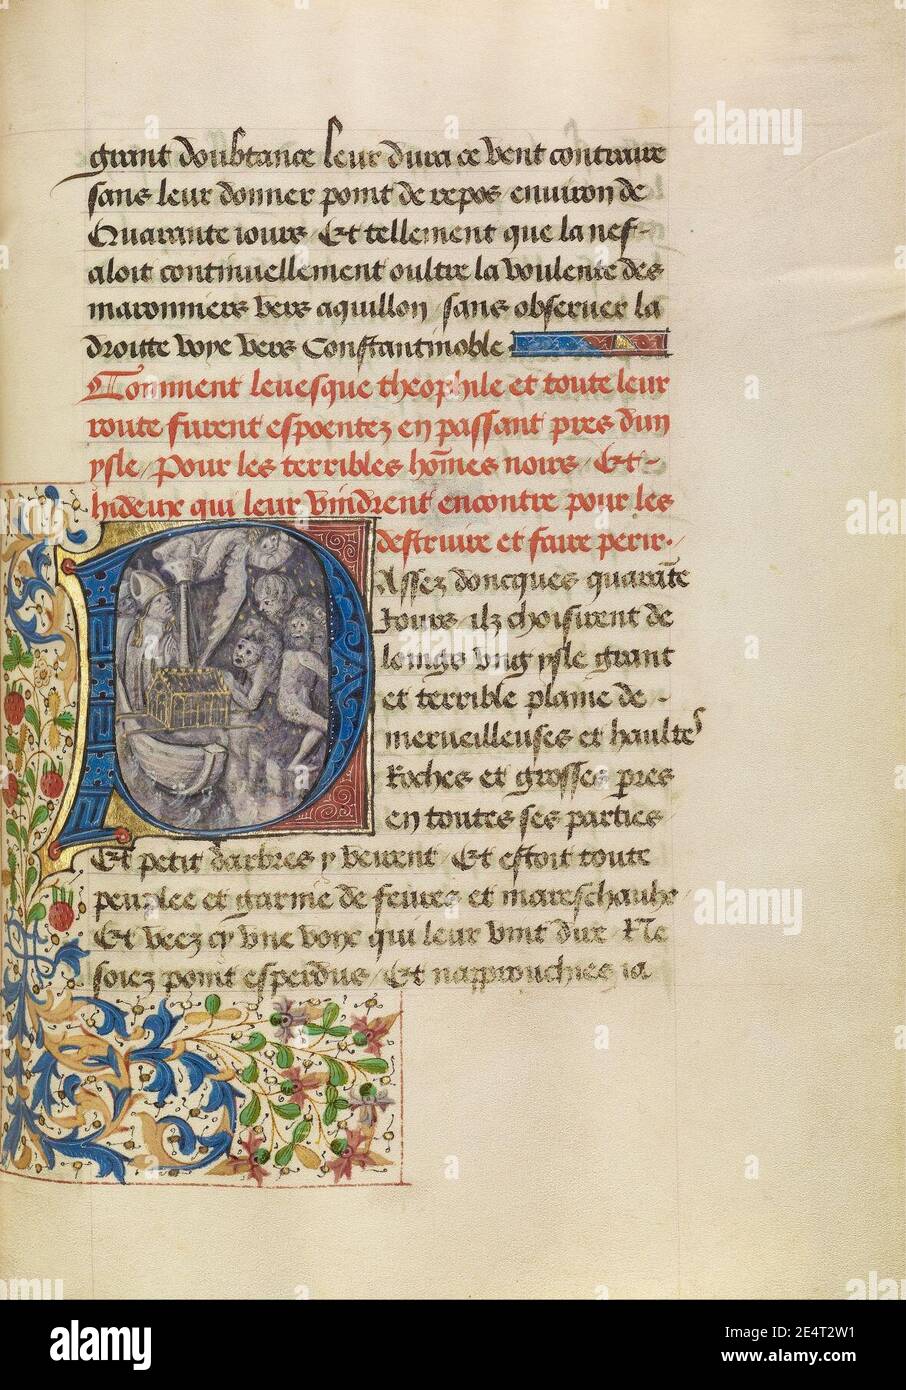 grant doubtance leur dura ce vent contraire
sans leur donner point de repos environ de
Quarante iours / Et tellement que la nef-
aloit continuellement oultre la voulente des
maronniers vers aquillon / sans observer la
droitte voye vers Constantinoble
Comment levesque theophile et toute leur
route furent espoentez en passant pres dun
ysle / Pour les terribles hom̄es noirs / Et-
hideux qui leur vindrent encontre pour les
destruire et faire perir.
PAssez doncques quarāte
Iours / ilz choisirent de
loings ung ysle grant
et terrible plaine de -
merveilleuses et haultes
Roches et grosses pres
en toutes ses parties
Et petit darbres y veirent / Et estoit toute
peuplee et garnie de fevres et mareschaulx
Et veez cy une voix qui leur vint dire / Ne
soiez point esperdus / Et napprouchies ia
alamy
alamy
alamy
Image ID: 2E4T2W1
www.alamy.com